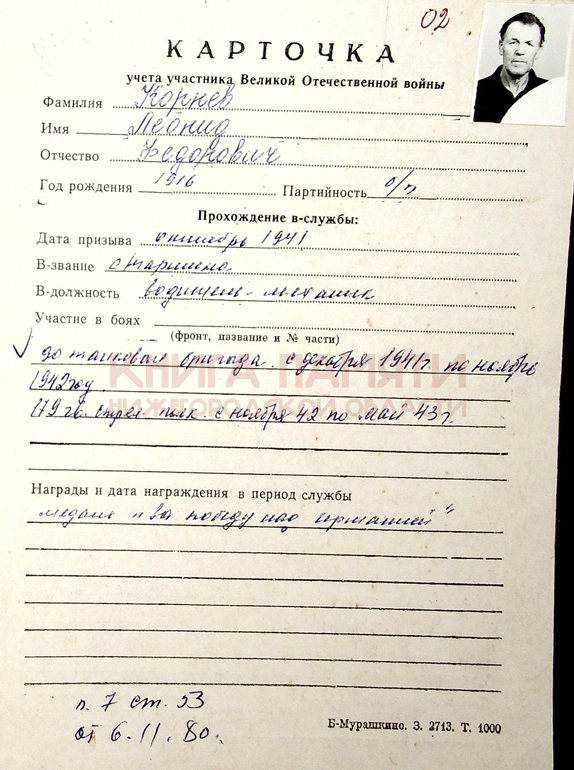 02
КАРТОЧКА
учета участника Великой Отечественной войны
Фамилия Корнев
Имя Леонид
Отчество Федорович
Год рождения 1916 Партийность б/п
Прохождение в-службы:
Дата призыва октябрь 1941
В-звание старшина
В-должность водитель-механик
Участие в боях
(фронт, название и № части)
танковая бригада с декабря 1941г. по ноябрь
1942 год
КНИГА ПАМЯТИ
НИЖЕГОРОДСКОЙ ОБЛАСТИ
179 гв. стрел. полк. с ноября 42 по май 43 г.
Награды и дата награждения в период службы
медаль "За победу над Германией"
п. 7 ст. 53
от 6.11.80.
Б-Мурашкино. З. 2713. Т. 1000